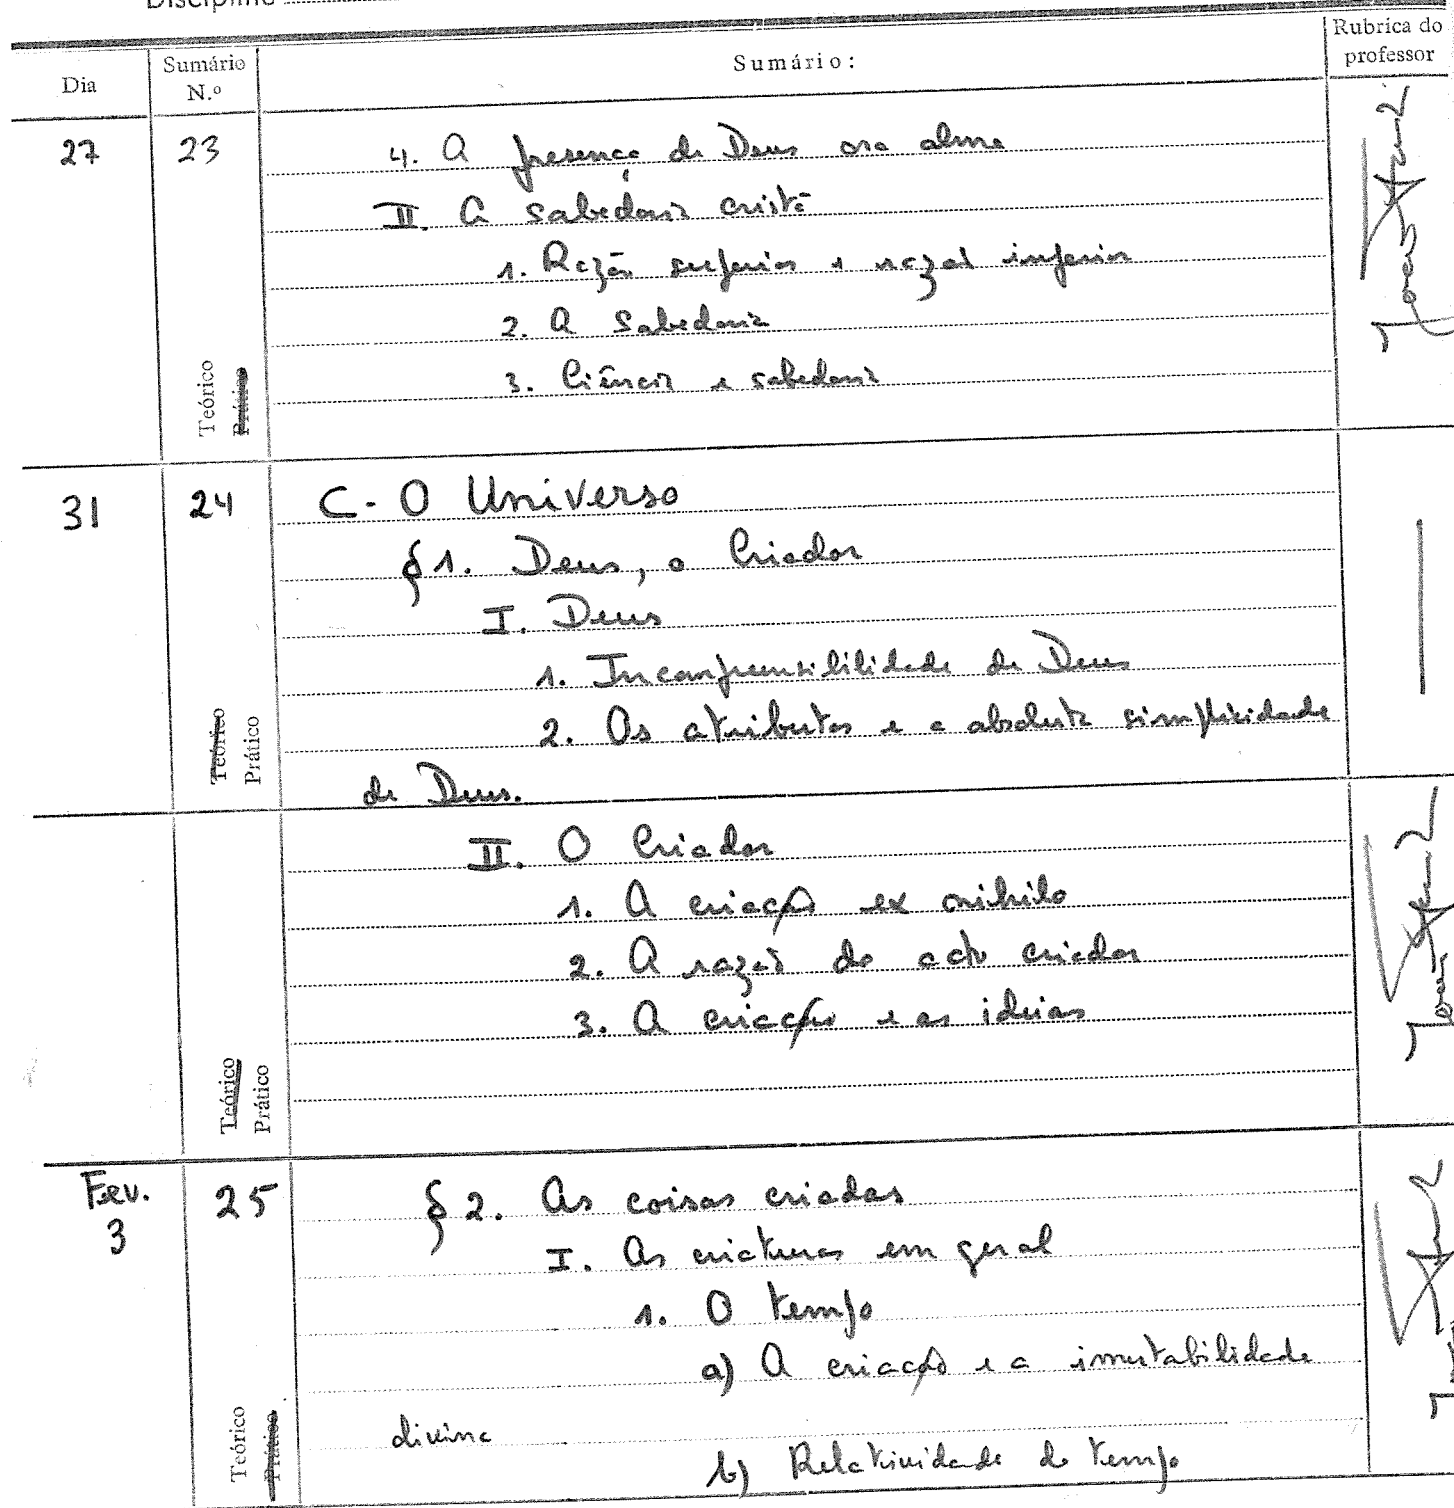 Discipline
Dia
Sumário N.º
Sumário:
Rubrica do professor
27
23
4. A presença de Deus na alma
II. A sabedoria cristã
1. Razão superior e razão inferior
2. A Sabedoria
3. Ciência e sabedoria
Teórico
Prático
31
24
C. O Universo
§1. Deus, o Criador
I. Deus
1. Incompreensibilidade de Deus
2. Os atributos e a absoluta simplicidade
de Deus.
Teórico
Prático
II. O Criador
1. A criação ex nihilo
2. A razão do acto criador
3. A criação e as ideias
Teórico
Prático
Fev.
3
25
§2. As coisas criadas
I. As criaturas em geral
1. O tempo
a) A criação e a imutabilidade
divina
b) Relatividade do tempo
Teórico
Prático